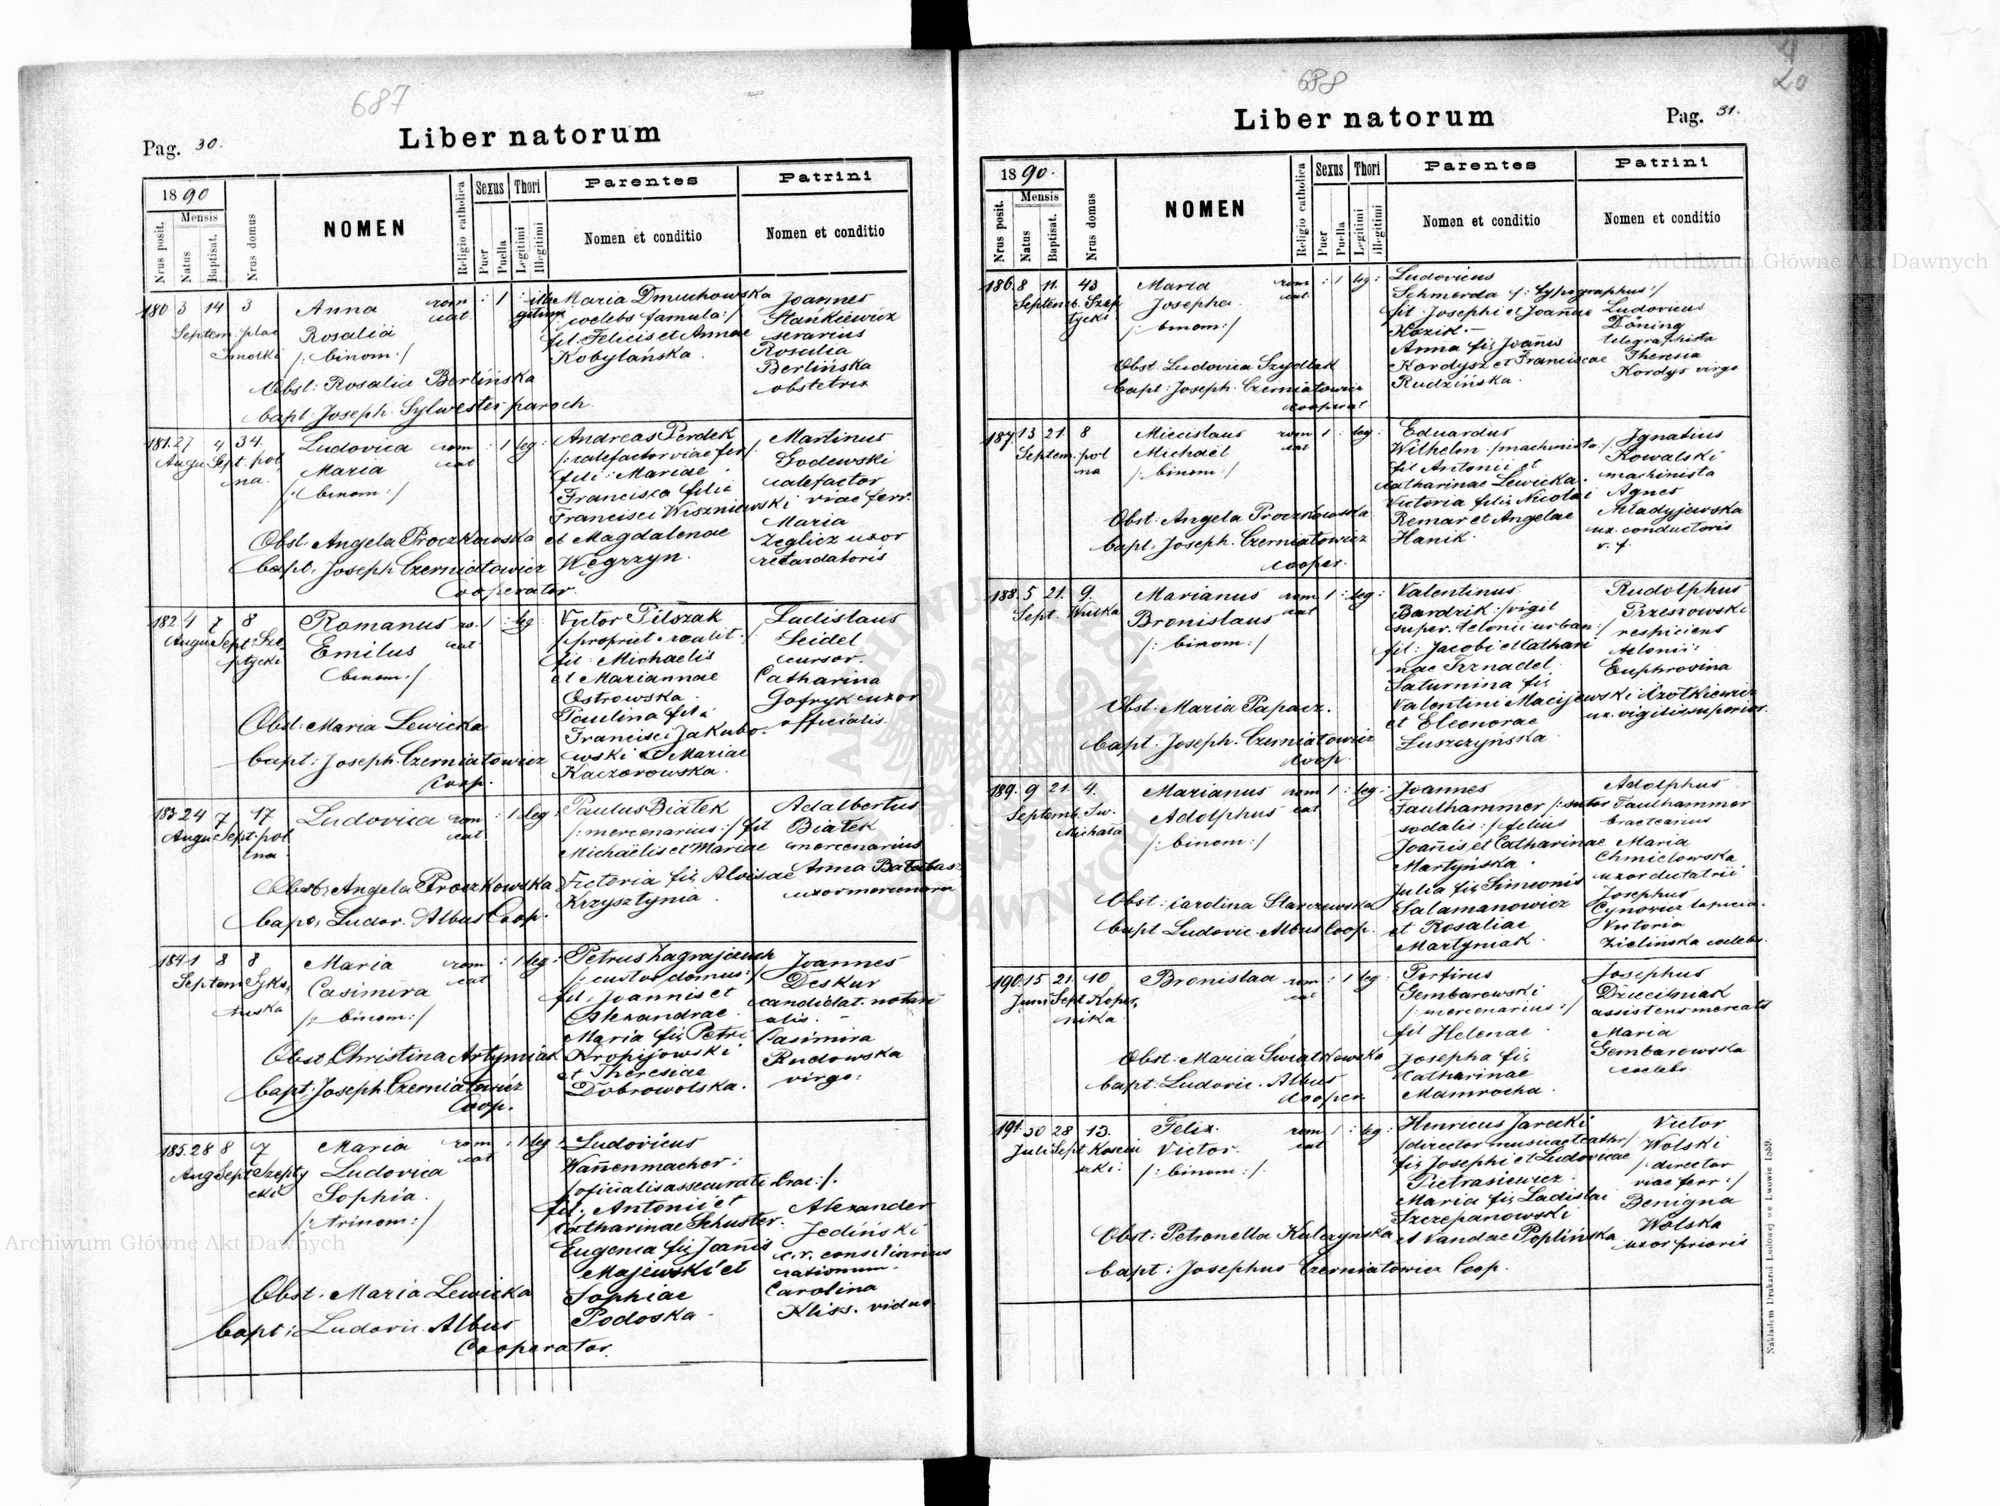 687
Pag. 30.
Liber natorum
18 90
Mensis
Nrus posit.
Natus
Baptisat.
Nrus domus
NOMEN
Religio catholica
Sexus
Puer
Puella
Thori
Legitimi
Illegitimi
Parentes
Nomen et conditio
Patrini
Nomen et conditio
180 3 14 3
Septem plac
Smolki
Anna
Rosalia
/: binom :/
rom
cat
: 1 :
Maria Dmuchowska
/coelebs famula:/
fil: Felicis et Annae
Kobylańska.
Joannes
Stańkiewicz
serarius
Rosalia
Berlińska
obstetrix
Obst: Rosalia Berlińska
bapt: Joseph. Sylwester paroch.
181. 27 4 34.
Augu Sept. pol
na.
Ludovica
Maria
/: binom :/
rom
cat
: 1 leg:
Andreas Perdek
/:calefactor viae fer/:
fili: Mariae
Francisca filia
Francisci Wiszniewski
et Magdalenae
Węgrzyn.
Martinus
Godewski
calefactor
viae ferr.
Maria
Zeglicz uxor
retardatoris
Obst. Angela Proczkowska
bapt: Joseph Czerniatowicz
Cooperator.
182. 4 7 8
Augu Sept Sze
ptycki
Romanus
Emilus
/binom:/
ro.
cat
1 : leg
Victor Pilszak
/propriet. realit:/
fil: Michaelis
et Mariannae
Ostrowska.
Paulina fili
Francisci Jakubo-
wski et Mariae
Kaczorowska.
Ladislaus
Seidel
cursor.
Catharina
Gofryk uxor
officialis
Obst. Maria Lewicka
bapt: Joseph. Czerniatowicz
Coop.
183. 24 7 17
Augu Sept. pol
na
Ludovica
rom
cat
: 1 leg:
Paulus Białek
/:mercenarius:/ fil
Michaëlis et Mariae
Victoria fil: Aloisae
Krzysztynia.
Adalbertus
Białek
mercenarius
Anna Bałabas
uxor mercenarii
Obst; Angela Proczkowska
bapt, Ludov. Albus Coop.
184. 1 8 8
Septem Syks,
tuska
Maria
Casimira
/: binom:/
rom
cat
: 1 leg:
Petrus Zagrajczuk
/:custos domus:/
fil: Joannis et
Alexandrae.
Maria fil: Petri
Kropijowski
et Theresiae
Dobrowolska.
Joannes
Deskur
candidat. notari
alis.
Casimira
Rudowska
virgo:
Obst, Christina Artymiak
bapt: Joseph. Czerniatowicz
Coop.
185. 28 8 7
Aug Sept Szepty
cki
Maria
Ludovica
Sophia.
/: trinom:/
rom
cat
: 1 leg:
Ludovicus
Wañenmacher:
/oficialis assecurati Crac:/.
fil: Antonii et
Catharinae Schuster.
Eugenia fil: Joañis
Majewski et
Sophiae
Podoska.
Alexander
Jediński
c.r. consiliarius
rationum.
Carolina
Kliss. vidua.
Obst. Maria Lewicka
bapt: Ludovic. Albus
Cooperator.
688
20
Liber natorum
Pag. 31.
18 90.
Mensis
Nrus posit.
Natus
Baptisat.
Nrus domus
NOMEN
Religio catholica
Sexus
Puer
Puella
Thori
Legitimi
Illegitimi
Parentes
Nomen et conditio
Patrini
Nomen et conditio
186. 8 11. 43
Septemb. Szep
tycki
Maria
Josepha.
/: binom:/
rom
cat
: 1 leg:
Ludovicus
Schmerda /: typographus:/
fil Josephi et Joañae
Kozik.
Anna fil: Joañis
Kordysz et Franciscae
Rudzińska.
Ludovicus
Döning
telegraphista
Theresia
Kordys virgo
Obst Ludovica Szydlak
bapt: Joseph. Czerniatowicz
cooperat
187. 13 21. 8
Septem. pol
na
Miecislaus
Michaël
/: binom:/
rom
cat
1 : leg:
Eduardus
Wilhelm. /machinista:/
fil Antonii et
Catharinae Lewicka.
Victoria filia Nicolai
Remar et Angelae
Hanik.
Ignatius
Kowalski
machinista
Agnes
Mładyjewska
ux. conductoris
v. f.
Obst: Angela Proczkowska
bapt: Joseph. Czerniatowicz
cooper.
188. 5 21. 9.
Sept. Wulka
Marianus
Bronislaus
/: binom:/
rom
cat
1 : leg:
Valentinus
Bardzik. /vigil
super. telonii urban:/
fil: Jacobi et Cathari
nae Trznadel.
Saturnina fil:
Valentini Macijewski
et Eleonorae
Łuszczyńska.
Rudolphus
Brzesowski
respiciens
telonii:
Euphrosina
ux. vigilis superior.
Obst: Maria Papacz.
bapt: Joseph. Czerniatowicz
Coop.
189. 9 21. 4.
Septemb. Sw.
Michała
Marianus
Adolphus
/: binom:/
rom
cat
1 : leg:
Joannes
Faulhammer /:sutor
sodalis:/ filius
Joañis et Catharinae
Martyńska.
Julia fil: Simeonis
Salamanowicz
et Rosaliae
Martyniak.
Adolphus
Faulhammer
bractearius
Maria
Chmielowska
uxor dictatrii
Josephus
Cynowicz tapicia.
Victoria
Zielińska coelebs.
Obst: Carolina Starczewska
bapt Ludovic. Albus Coop.
190. 15 21. 10
Juni Sept Koper,
nika.
Bronislaa
rom
cat
: 1 leg:
Porfirus
Gembarowski
/:mercenarius:/
fil Helenae.
Josepha fil:
Catharinae
Mamrocha.
Josephus
Dziecielniak
assistens mercats
Maria
Gembarowska
coelebs.
Obst: Maria Świątkowska
bapt: Ludovic. Albus
Cooper.
191. 30 28 13.
Juli Sept Kosciu
szki.
Felix.
Victor.
/: binom:/.
rom
cat
1 : leg:
Henricus Jarecki
/director musicae teathr/
fil: Josephi et Ludovicae
Pietrasiewicz.
Maria fil: Ladislai
Szczepanowski
et Vandae Poplińska
Victor
Wolski
/: director
viae ferr:/
Benigna
Wolska
uxor prioris
Obst: Petronella Kulczynska
bapt: Josephus Czerniatowicz Coop.
Nakładem Drukarni Ludowej we Lwowie 1889.
Archiwum Główne Akt Dawnych
Archiwum Główne Akt Dawnych